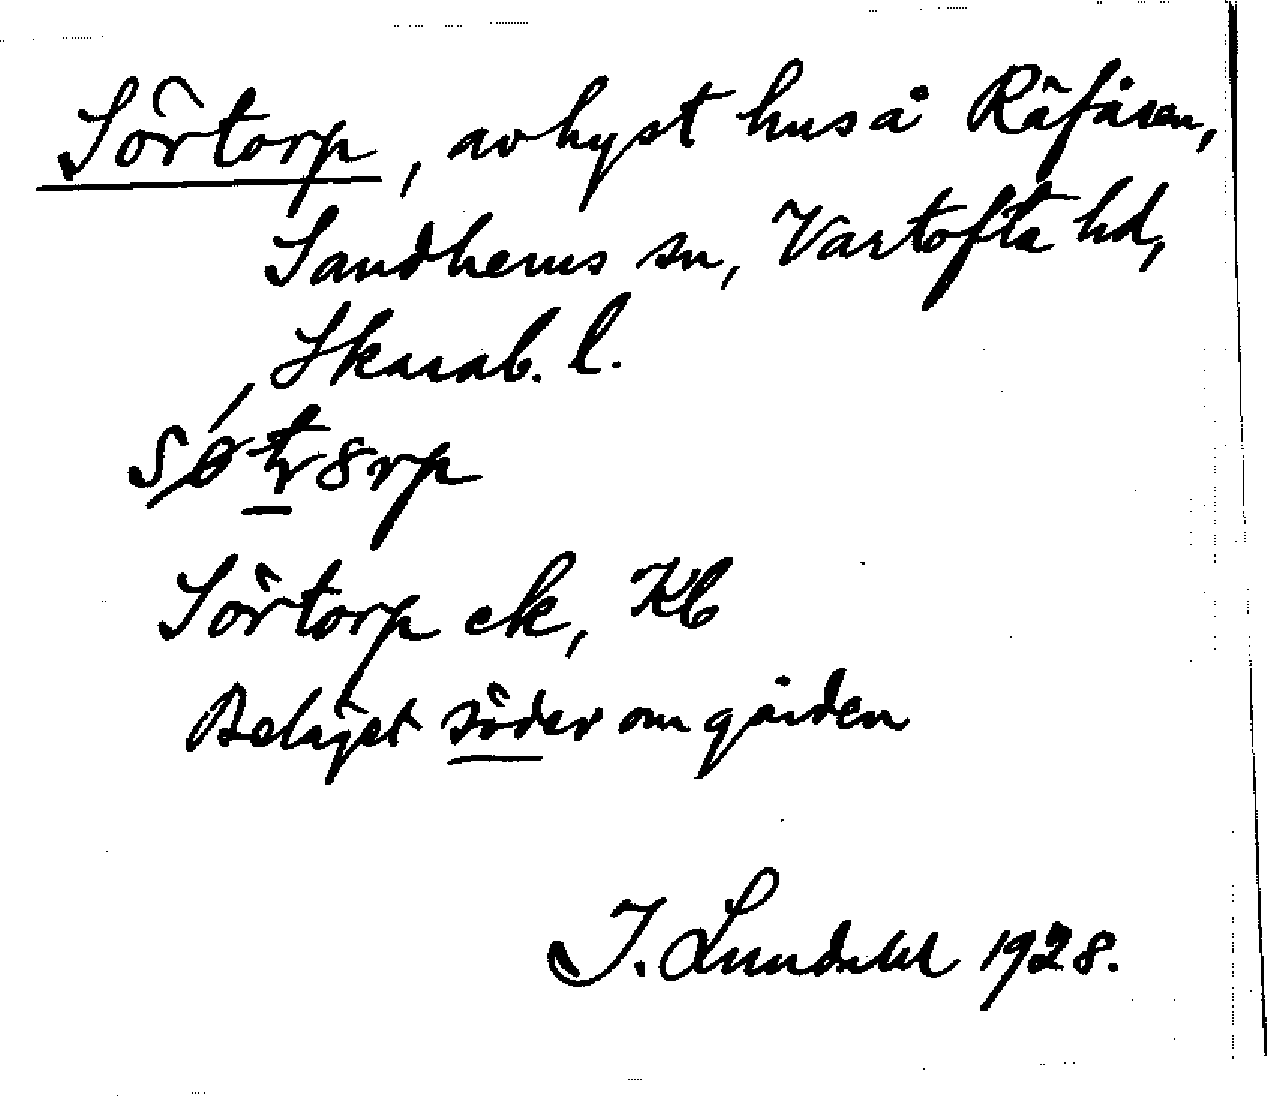 Sörtorp, avhyst hus å Räfåsen,
Sandhems sn, Vartofta hd,
Skarab. l.
Sörtorp ek, Kb
Beläget söder om gården
J. Lundahl 1928.